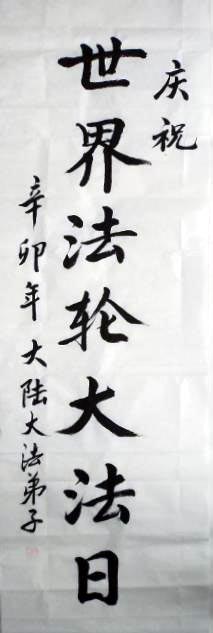 庆祝
世界法轮大法日
辛卯年大陆大法弟子